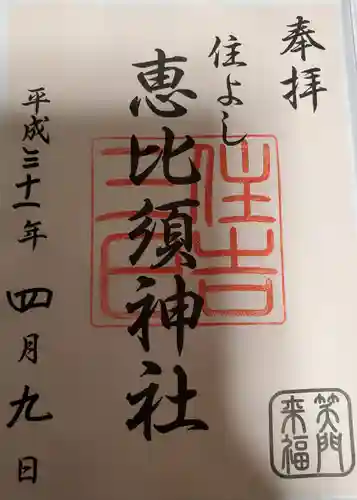 奉拝
住よし
恵比須神社
平成三十一年
四月九日
住吉
笑門
来福